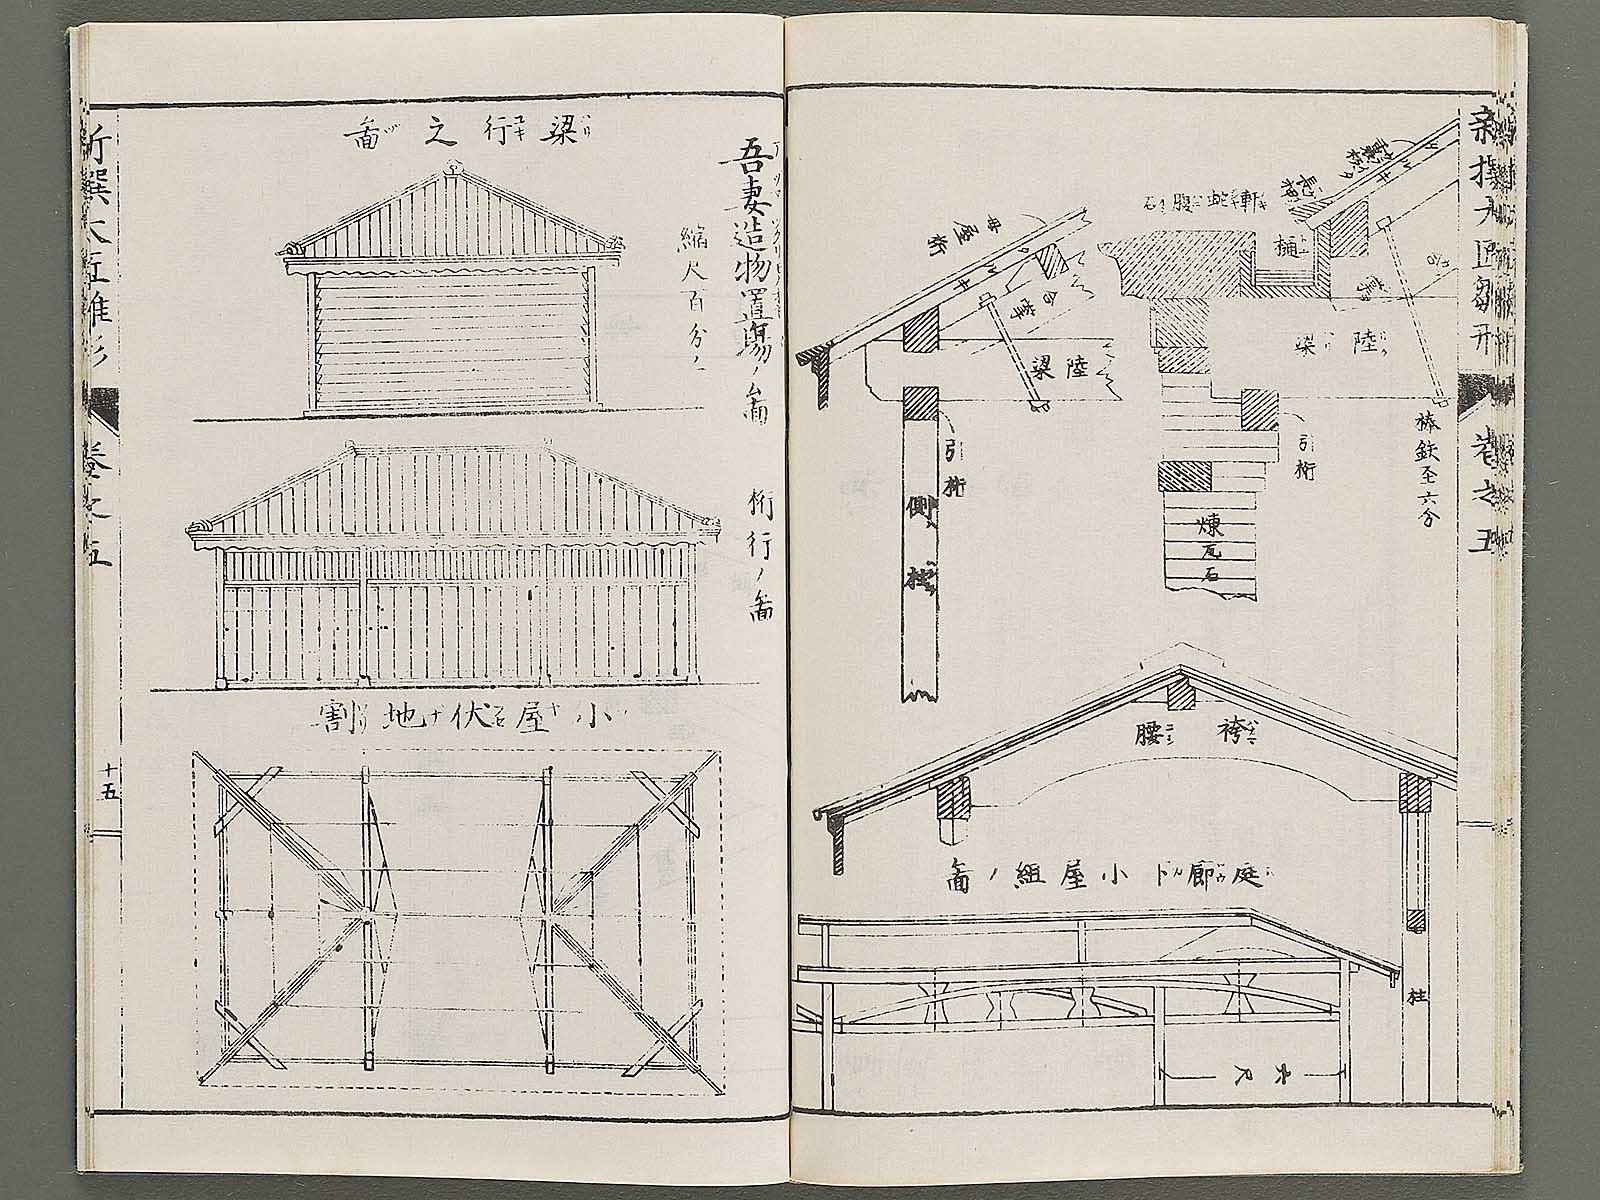 新撰大匠雛形
巻之五
軒蛇腹石
樋
母屋桁
合掌
陸梁
陸梁
引桁
引桁
側柱
煉瓦石
棒鉄圣六分
袴腰
庭廊下小屋組ノ啚
柱
六尺
吾妻造物置場ノ啚
縮尺百分ノ一
梁行之啚
桁行ノ啚
小屋伏地割
新撰大匠雛形
巻之五
十五